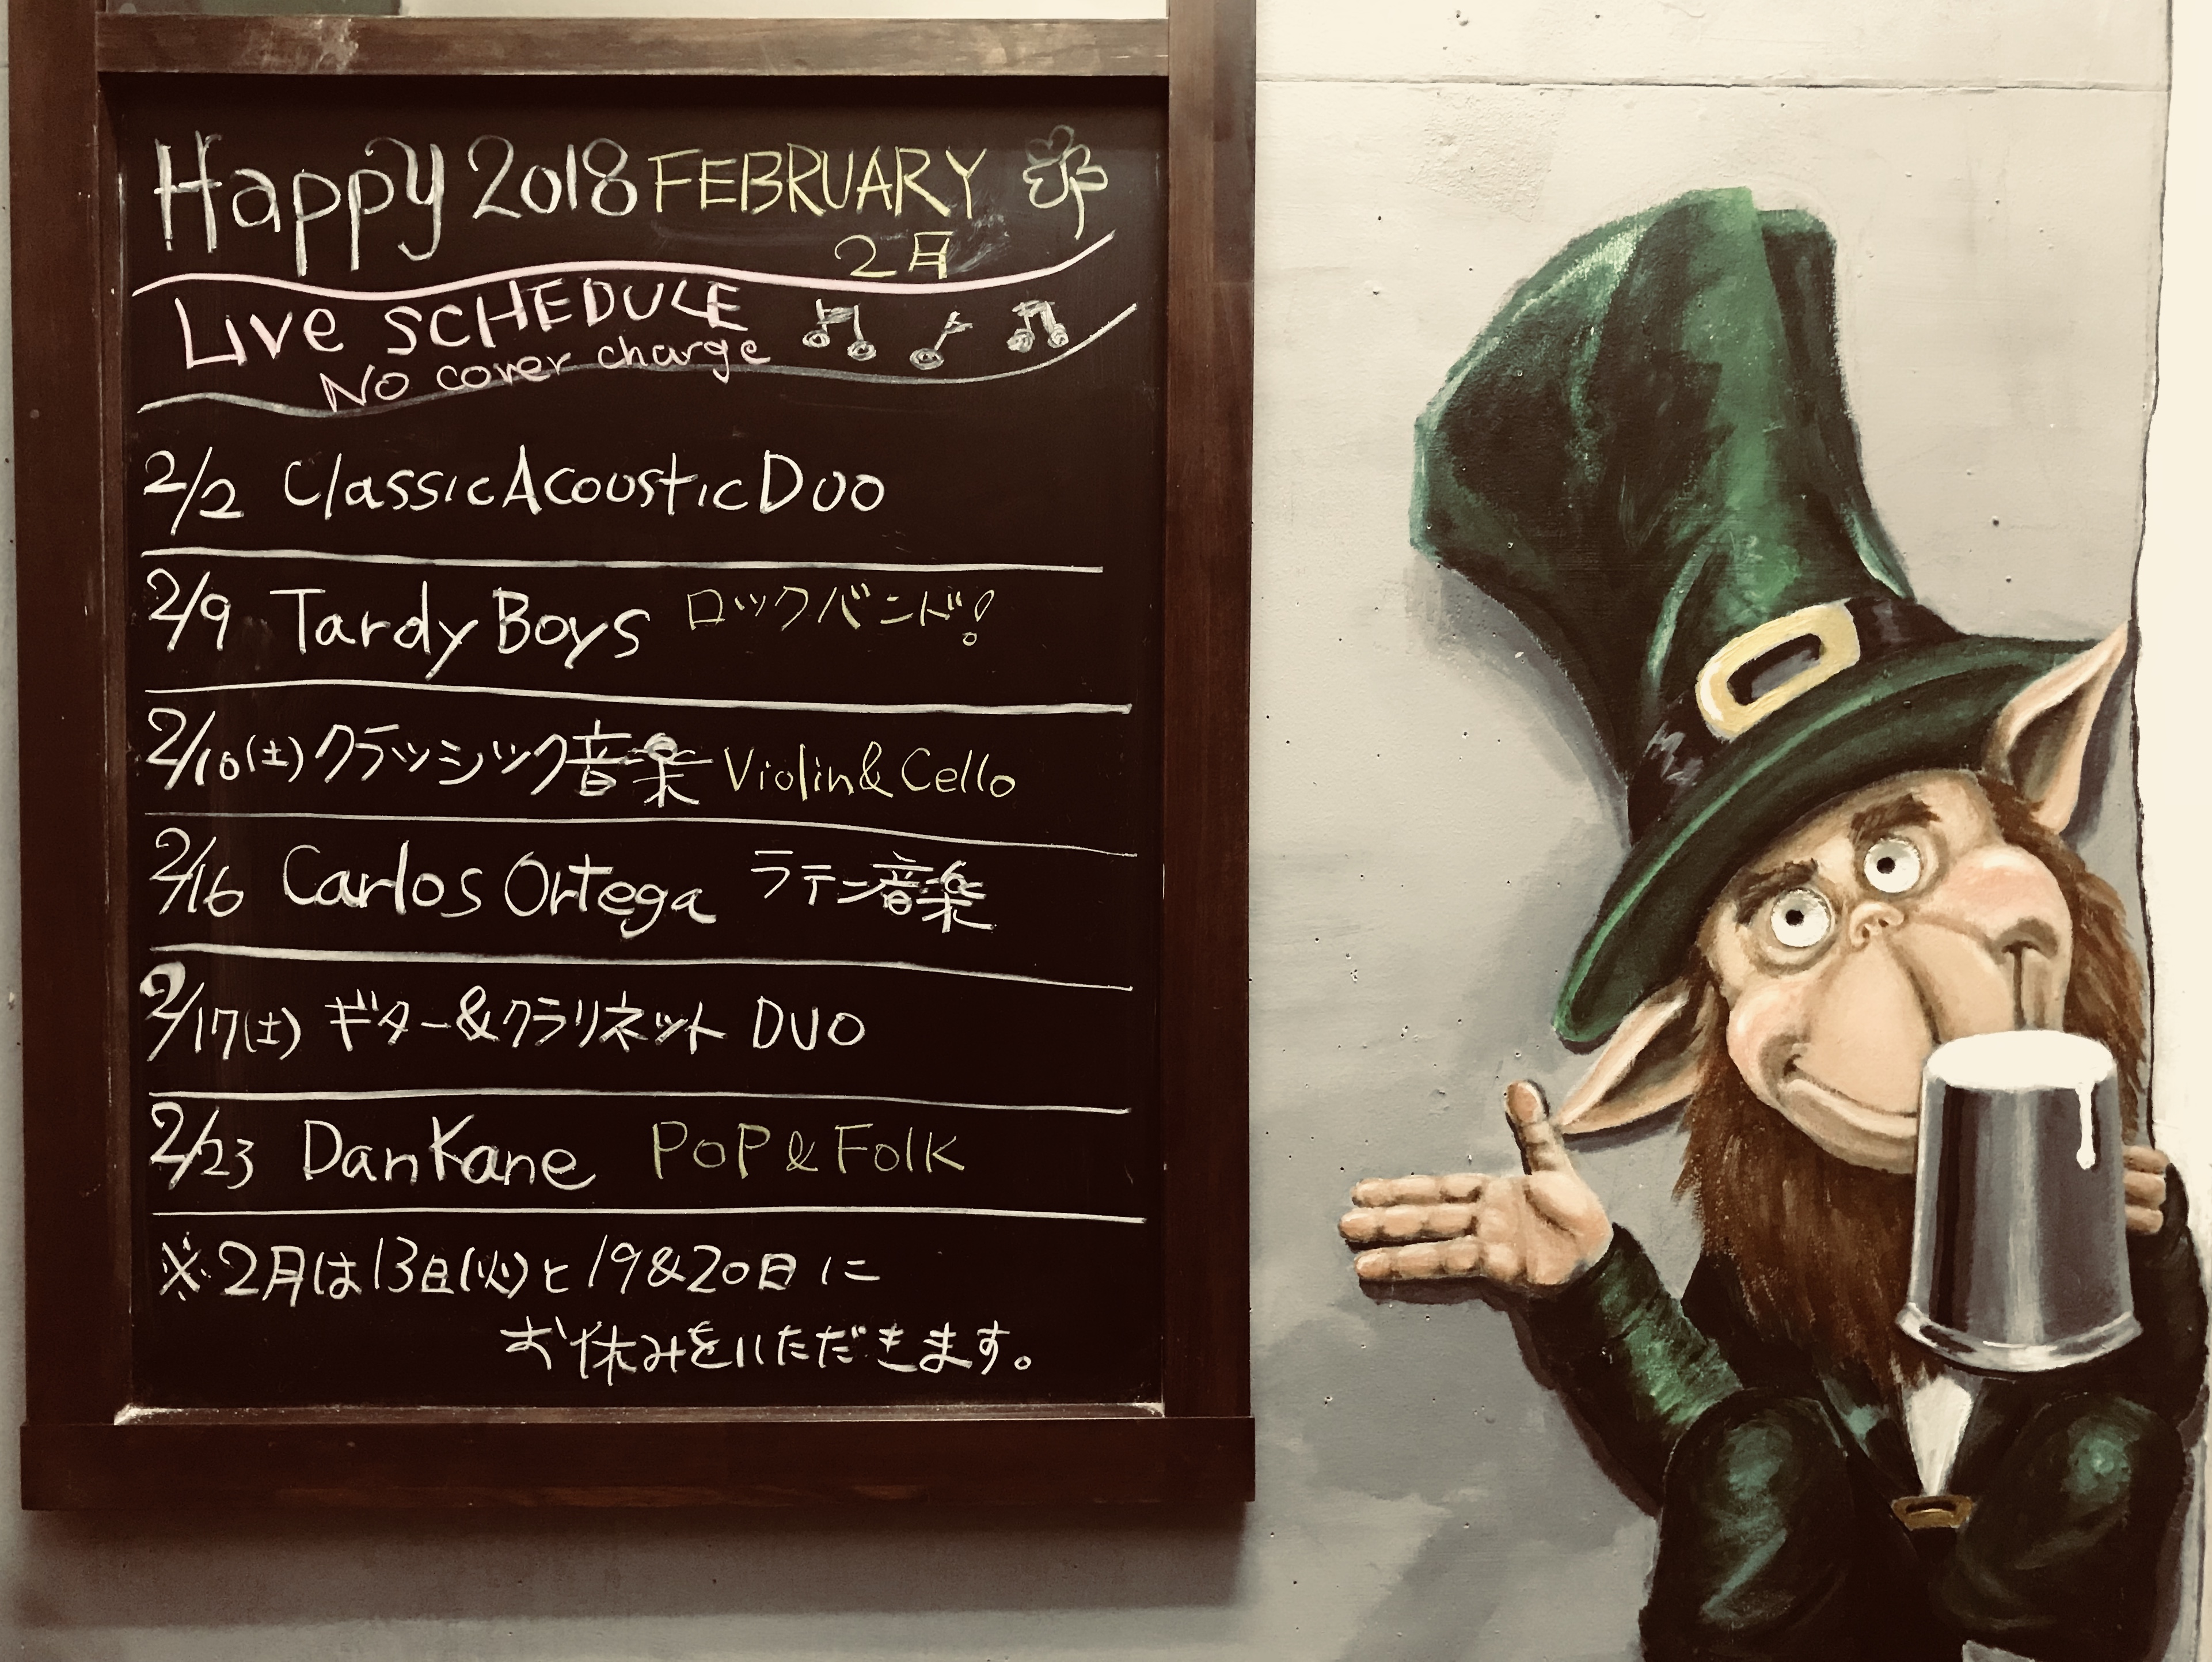 Happy 2018 FEBRUARY
2月
Live SCHEDULE
No cover charge
2/2 Classic Acoustic Duo
2/9 Tardy Boys ロックバンド!
2/10(土) クラッシック音楽 Violin & Cello
2/16 Carlos Ortega ラテン音楽
2/17(土) ギター&クラリネット DUO
2/23 Dan Kane POP & Folk
※2月は13日(火)と19&20日に
お休みをいただきます。